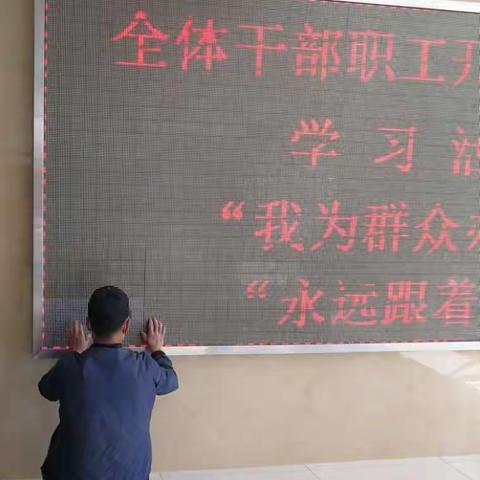 全体干部职工开
学习活
“我为群众办
“永远跟着